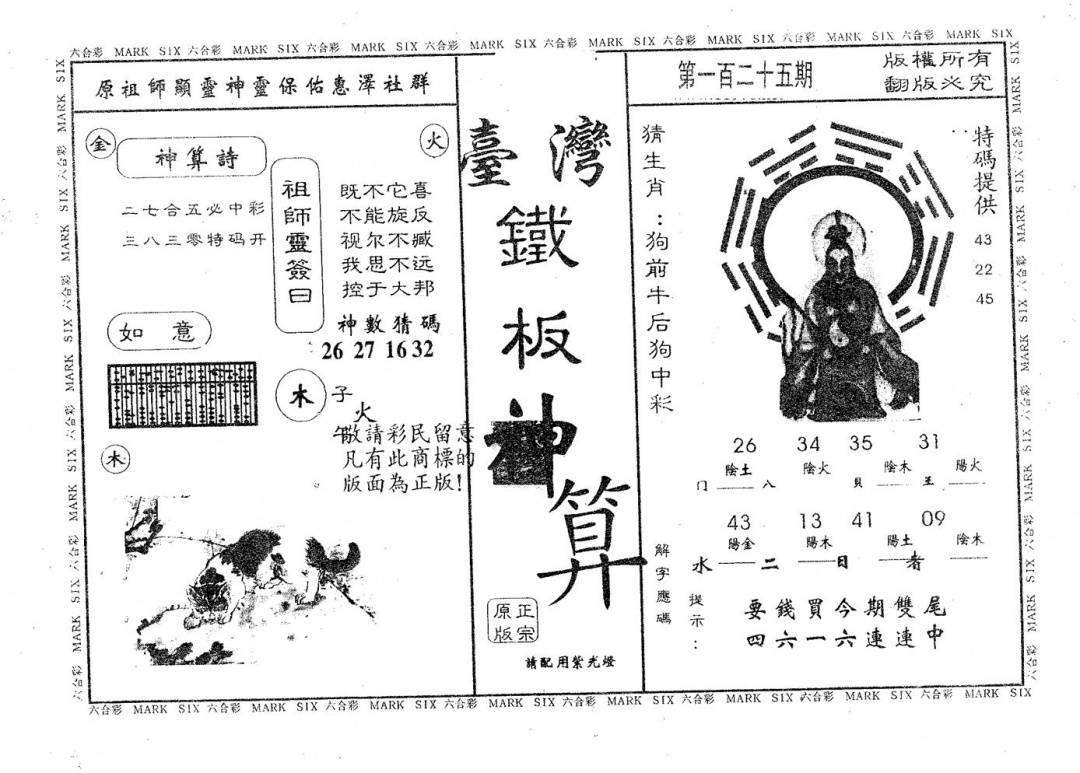 六合彩 MARK SIX 六合彩 MARK SIX 六合彩 MARK SIX 六合彩 MARK SIX 六合彩 MARK SIX 六合彩 MARK SIX 六合彩 MARK SIX 六合彩 MARK SIX
原祖師顯靈神靈保佑惠澤社群
金
神算詩
火
二七合五必中彩
三八三零特码开
祖師靈簽曰
既不它喜
不能旋反
视尔不臧
我思不远
控于大邦
神數猜碼
26 27 16 32
如意
木
子
火
午
敬請彩民留意
凡有此商標的
版面為正版!
木
臺灣
鐵
板
神
算
正宗
原版
請配用紫光燈
第一百二十五期
版權所有
翻版必究
猜生肖:狗前牛后狗中彩
特碼提供
43
22
45
26 34 35 31
陰土 陰火 陰木 陽火
门 八 貝 王
43 13 41 09
陽金 陽木 陽土 陰木
水 二 日 者
解字應碼
提示:
要錢買今期雙尾
四六一六連連中
六合彩 MARK SIX 六合彩 MARK SIX 六合彩 MARK SIX 六合彩 MARK SIX 六合彩 MARK SIX 六合彩 MARK SIX 六合彩 MARK SIX 六合彩 MARK SIX